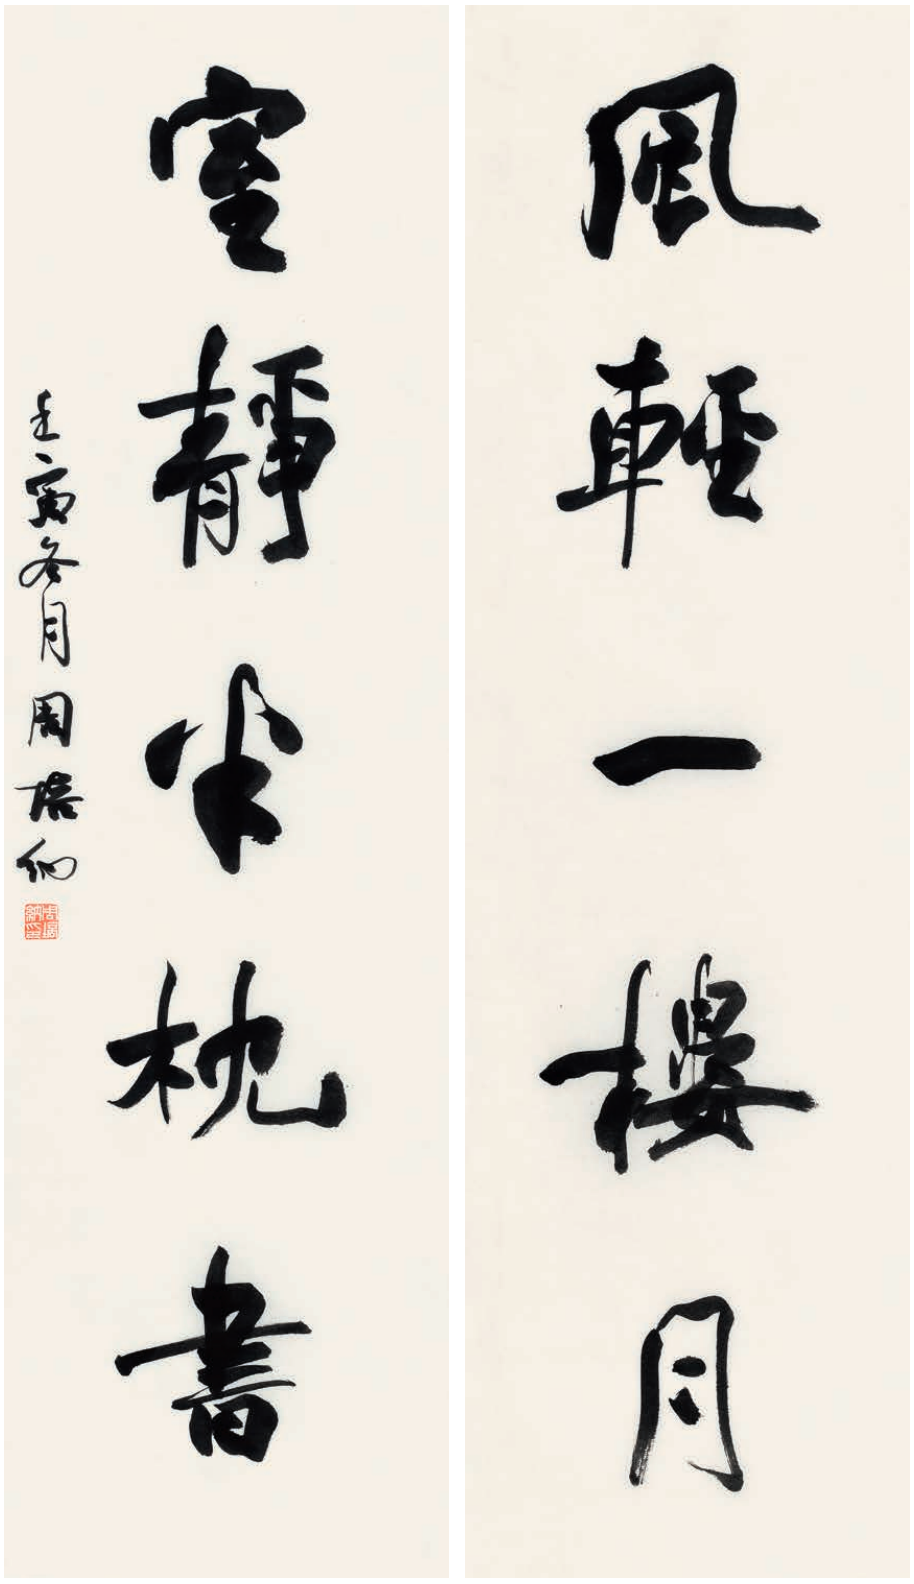 風輕一樓月
室靜半枕書
壬寅冬月周培納